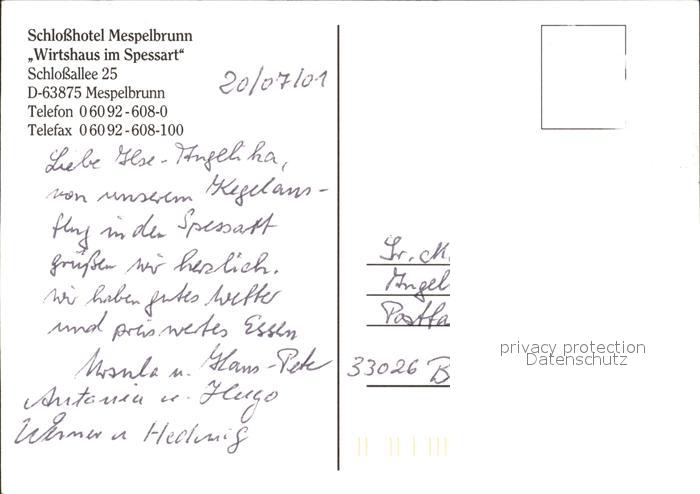 Schloßhotel Mespelbrunn
„Wirtshaus im Spessart“
Schloßallee 25
D-63875 Mespelbrunn
Telefon 0 60 92 - 608-0
Telefax 0 60 92 - 608-100
20/07/01
Liebe Ilse-Angelika,
von unserem Kegelaus-
flug in den Spessart
grüßen wir herzlich.
Wir haben gutes Wetter
und preiswertes Essen
Ursula u. Hans-Peter
Antonia u. Hugo
Werner u Hedwig
Sr. M.
Angel
Postfa
33026 B
privacy protection
Datenschutz